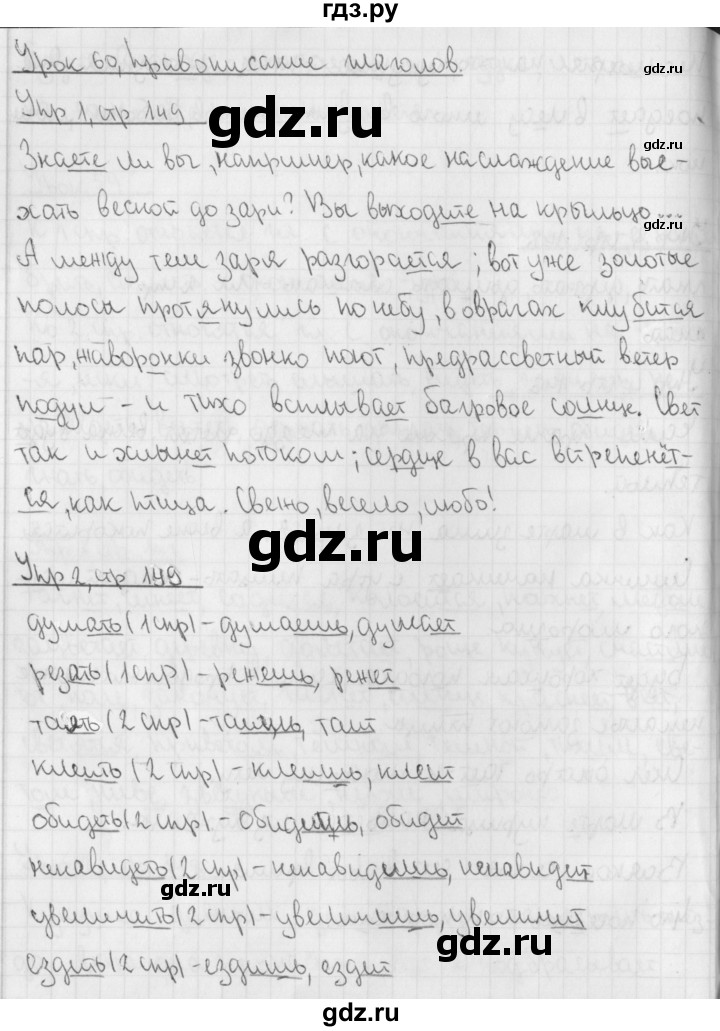 гдз.ру
Урок 60, Правописание глаголов.
Упр 1, стр 149
Знаете ли вы, например, какое наслаждение вые-
хать весной до зари? Вы выходите на крыльцо...
А между тем заря разгорается; вот уже золотые
полосы протянулись по небу, в оврагах клубится
пар, жаворонки звонко поют, предрассветный ветер
подул - и тихо всплывает багровое солнце. Свет
так и хлынет потоком; сердце в вас встрепенёт-
ся, как птица. Свежо, весело, любо!
Упр 2, стр 149
думать (1 спр) - думаешь, думает
резать (1 спр) - режешь, режет
таять (2 спр) - таишь, таит
клеить (2 спр) - клеишь, клеит
обидеть (2 спр) - обидишь, обидит
ненавидеть (2 спр) - ненавидишь, ненавидит
увеличить (2 спр) - увеличишь, увеличит
ездить (2 спр) - ездишь, ездит
gdz.ru
gdz.ru
gdz.ru
gdz.ru
gdz.ru
gdz.ru
gdz.ru
gdz.ru
gdz.ru
gdz.ru
gdz.ru